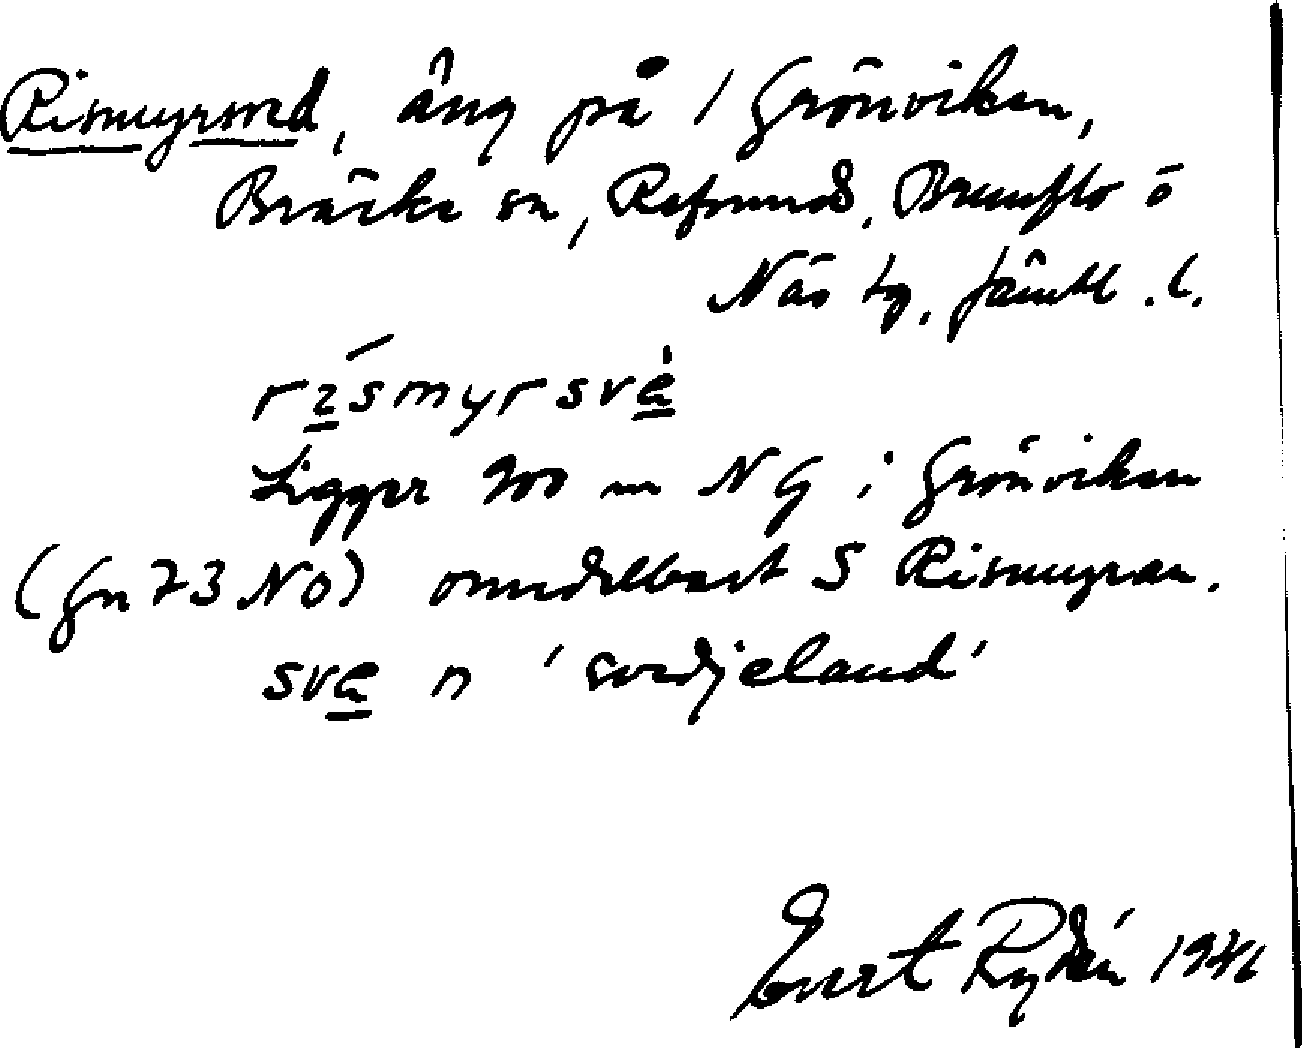 Rismyrsved, äng på 1 Grönviken,
Bräcke sn, Refsunds, Brunflo o
Näs tg, Jämtl. l.
rismyrsve
Ligger 900 m NG i Grönviken
(Gn 73 NO) omedelbart S Rismyran.
sve n 'svedjeland'
Evert Rydén 1946